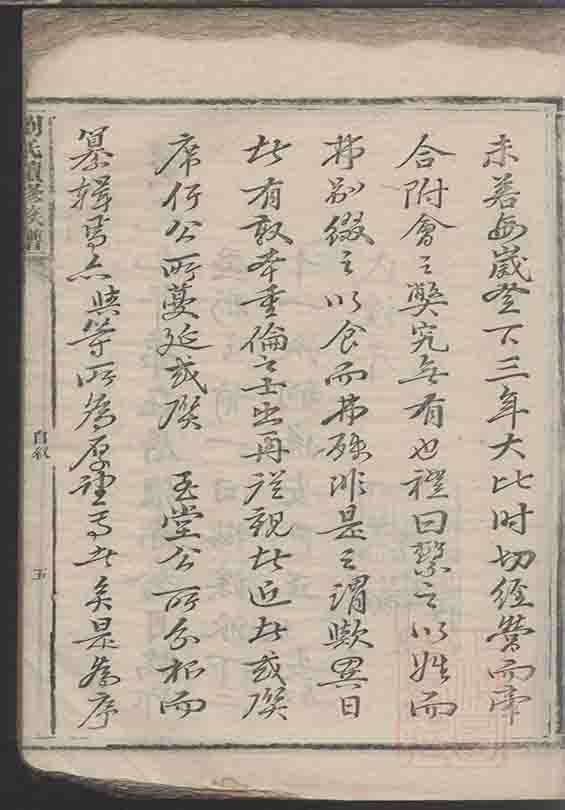 未若每歲登下三年大比时切经营而牽
合附會之獘究無有也禮曰繫之以姓而
弗别綴之以食而弗殊非是之謂歟異日
者有敦本重倫之士出再從親者近者或
席行公所蔓延或 玉堂公所分派而
纂輯焉亦等所為厚望焉者矣是為序
劉氏續修族譜
自叙
五